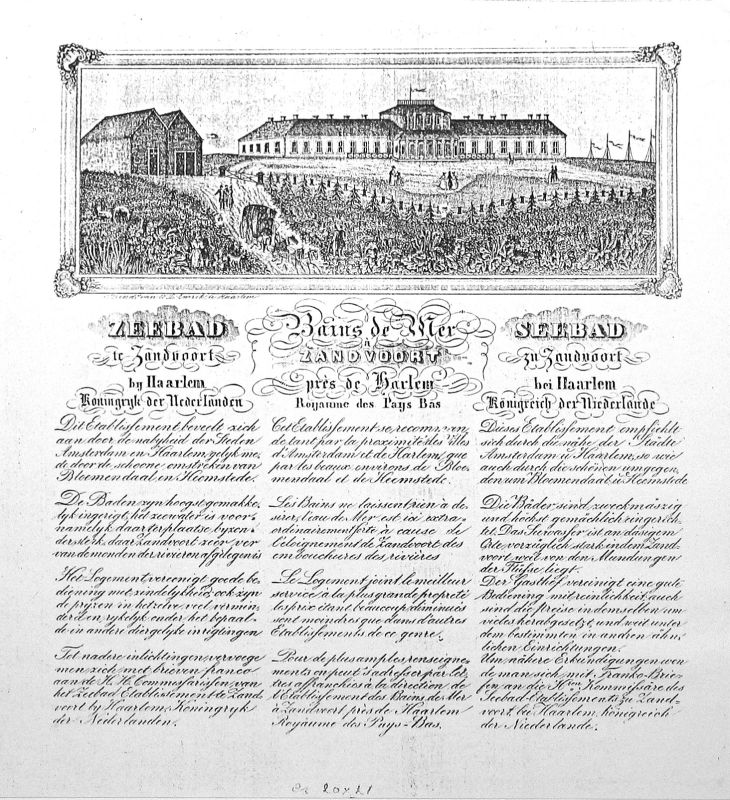 Steend: van
à Haarlem
ZEEBAD
te Zandvoort
by Haarlem
Koningryk der Nederlanden
Dit Etablissement beveelt zich
aan door de nabyheid der Steden
Amsterdam en Haarlem, gelyk me,
de door de schoone omstreken van
Bloemendaal en Heemstede.
De Baden zyn hoogst gemakke,
lyk ingerigt, het zeewater is voor-
namelyk daar ter plaatse byzon,
der sterk, daar Zandvoort zeer ver
van de monden der rivieren afgelegen is
Het Logement vereenigt goede be,
diening met zindelykheid, ook zyn
de pryzen in hetzelve veel vermin,
derd, en rykelyk onder het bepaal-
de in andere diergelyke inrigtingen
Tot nadere inlichtingen vervoege
men zich met brieven franco
aan de H.H. Commissarissen van
het Zeebad Etablissement te Zand,
voort by Haarlem, Koningryk
der Nederlanden.
Bains de Mer
à
ZANDVOORT
près de Harlem
Royaume des Pays Bas
Cet Etablissement se recomman,
de tant par la proximité des villes
d'Amsterdam et de Harlem, que
par les beaux environs de Bloe,
mendaal et de Heemstede.
Les Bains ne laissent rien à de
sirer, l'eau de Mer est ici extra-
ordinairement forte à cause de
l'éloignement de Zandvoort des
embouchures des rivières
Le Logement joint le meilleur
service à la plus grande propreté
les prix étant beaucoup diminués
sont moindres que dans d'autres
Etablissements de ce genre.
Pour de plus amples renseigne,
ments on peut s'adresser par let,
tres affranchies à la direction de
l'Etablissement des Bains de Mer
à Zandvoort près de Haarlem
Royaume des Pays-Bas.
SEEBAD
zu Zandvoort
bei Haarlem
Königreich der Niederlande
Dieses Etablissement empfiehlt
sich durch die nähe der Städte
Amsterdam u Haarlem, so wie
auch durch die schönen umgegen,
den um Bloemendaal u Heemstede
Die Bäder sind zweckmäszig
und höchst gemächlich eingerich,
tet. Das Seewasser ist an dasigem
Orte vorzüglich stark indem Zand-
voort weit von den Mundungen
der Flüsse liegt.
Der Gasthof vereinigt eine gute
Bedienung mit reinlichkeit, auch
sind die preise in demselben um
vieles herabgesetzt und weit unter
dem bestimmten in andren ähn,
lichen Einrichtungen.
Um nähere Erkundigungen wen
de man sich mit Franko-Brie-
fen an die H.ren Kommissäre des
Seebad Etablissements zu Zand-
voort, bei Haarlem, Königreich
der Niederlande.